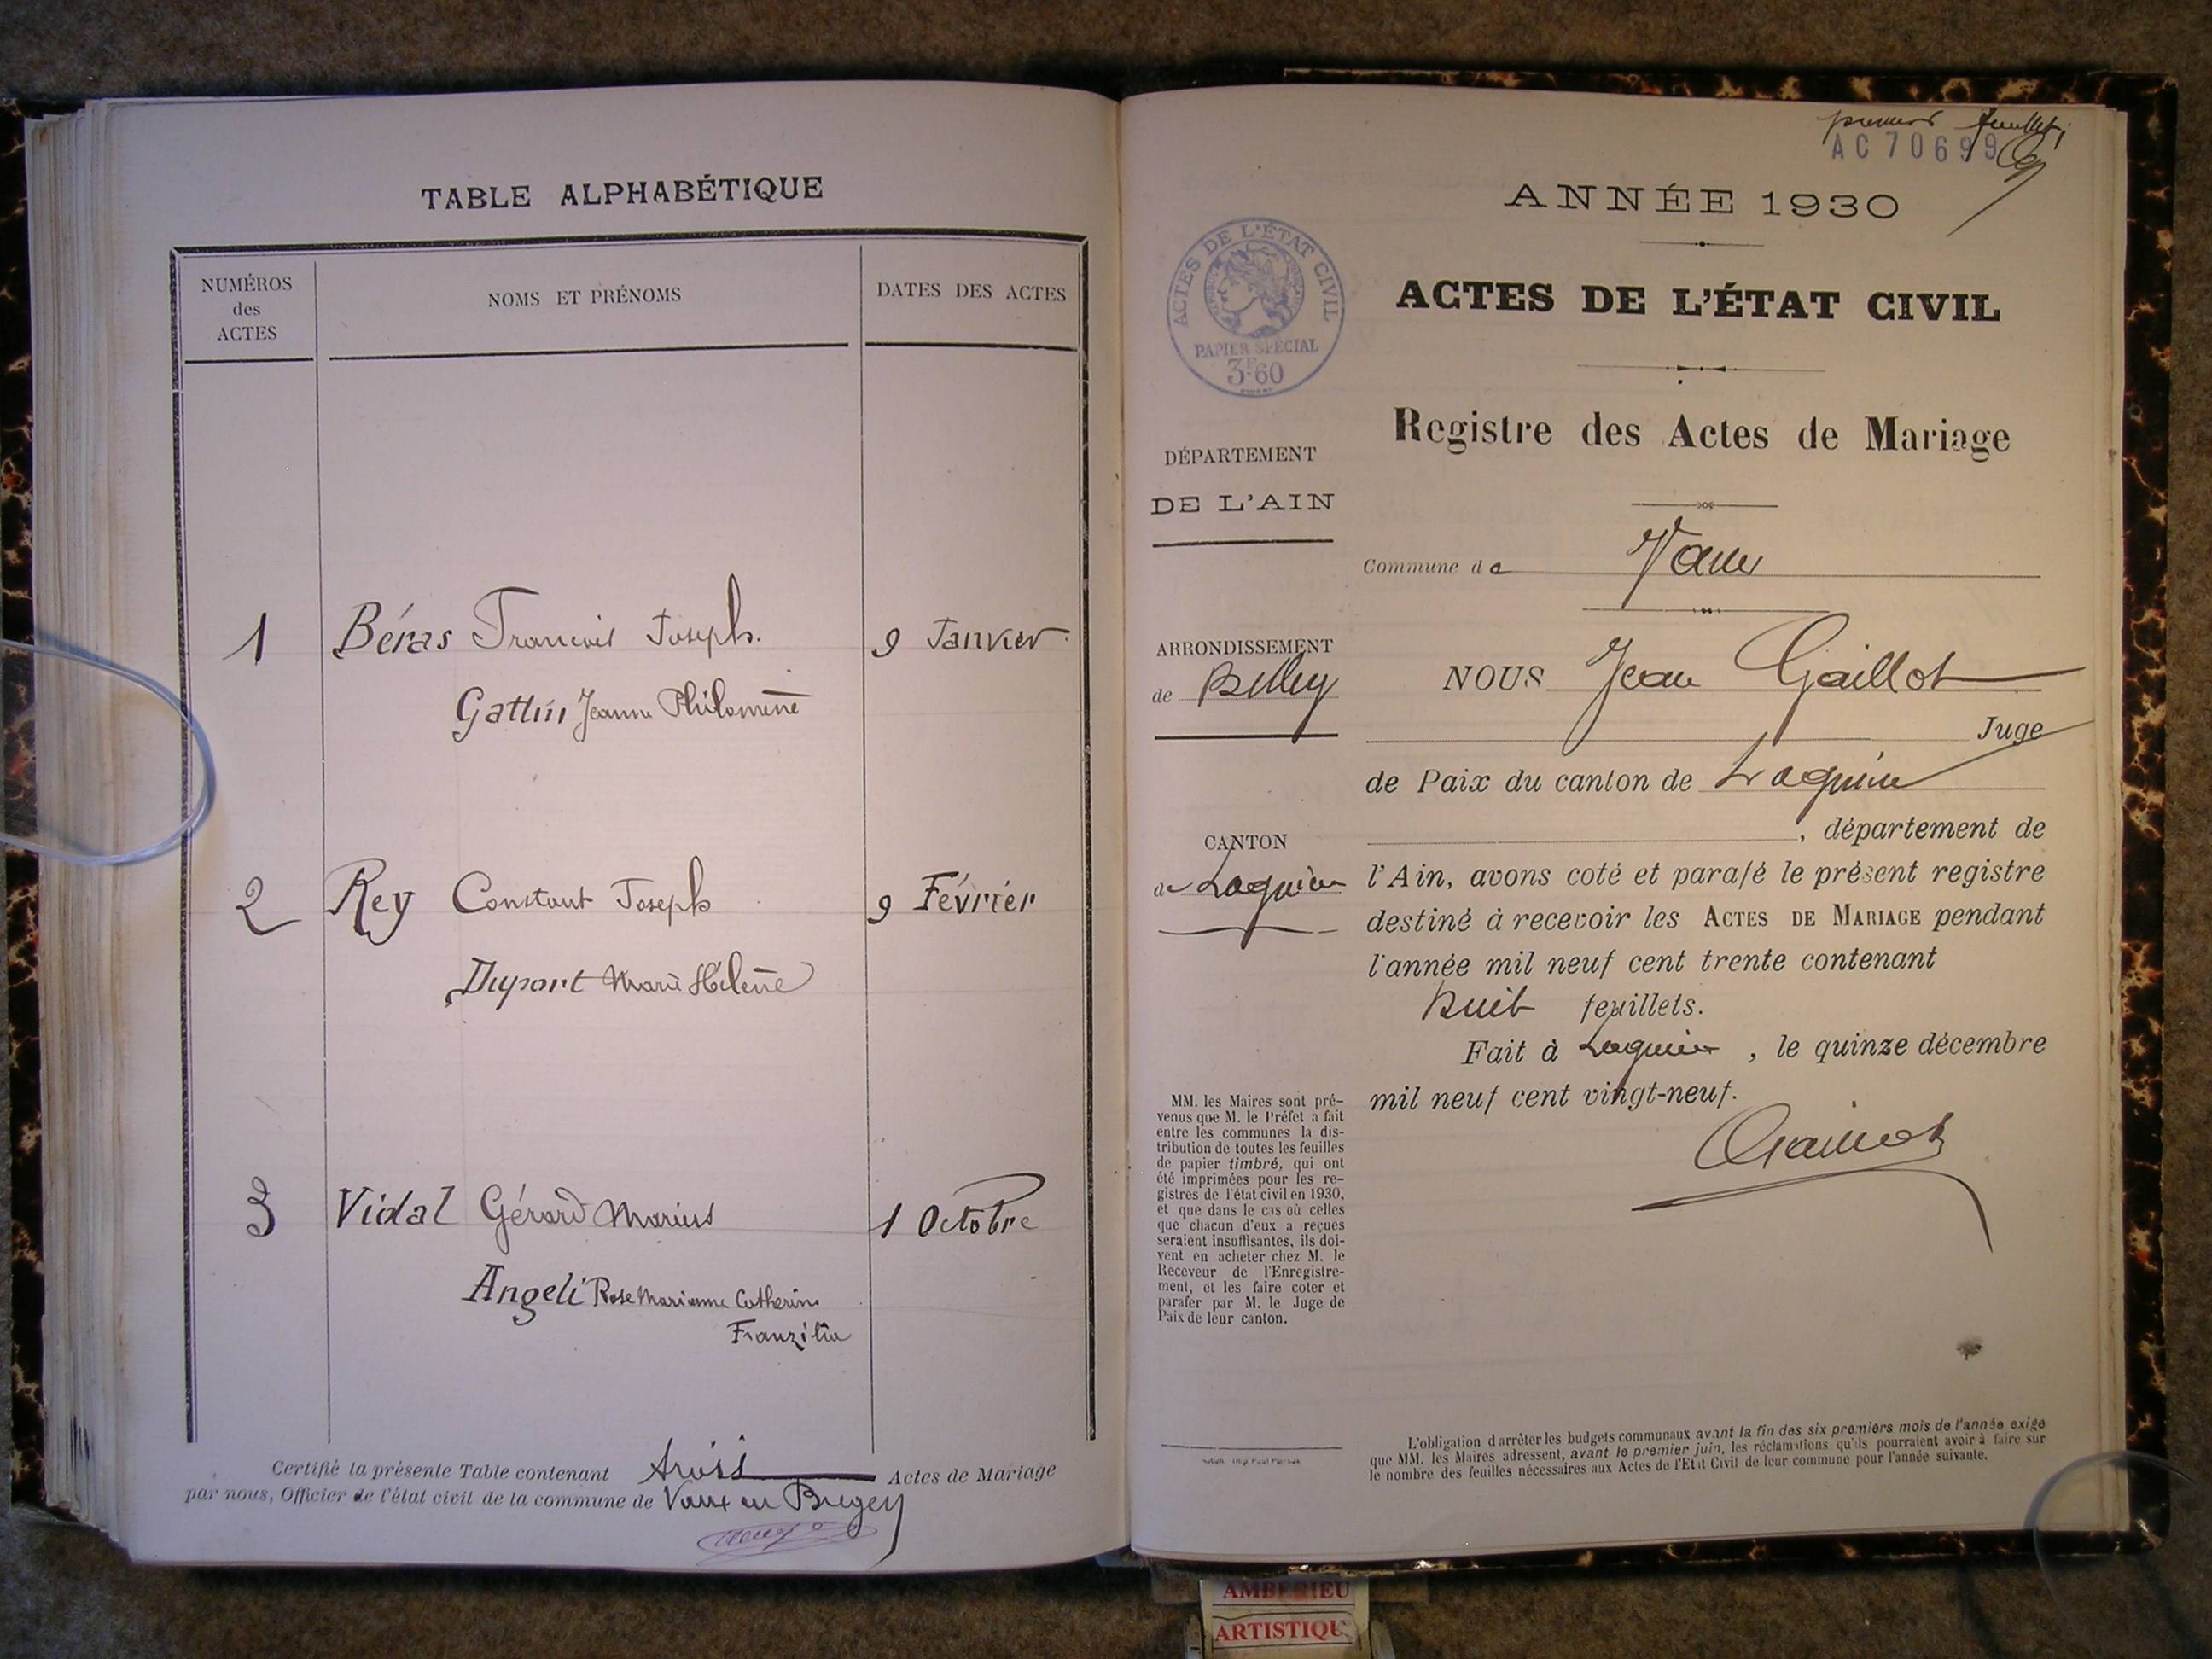 TABLE ALPHABÉTIQUE
NUMÉROS
des
ACTES
NOMS ET PRÉNOMS
DATES DES ACTES
1 Béras François Joseph. 9 Janvier
Gattin Jeanne Philomène
2 Rey Constant Joseph 9 Février
Duport Marie Hélène
3 Vidal Gérard Marius 1 Octobre
Angeli Rose Marianne Catherine
Certifié la présente Table contenant trois Actes de Mariage
par nous, Officier de l'état civil de la commune de Vaux en Bugey
premier feuillet
AC 70699
ANNÉE 1930
ACTES DE L'ÉTAT CIVIL
PAPIER SPÉCIAL
3F60
ACTES DE L'ÉTAT CIVIL
Registre des Actes de Mariage
DÉPARTEMENT
DE L'AIN
ARRONDISSEMENT
de Belley
CANTON
de Lagnieu
MM. les Maires sont pré-
venus que M. le Préfet a fait
entre les communes la dis-
tribution de toutes les feuilles
de papier timbré, qui ont
été imprimées pour les re-
gistres de l'état civil en 1930,
et que dans le cas où celles
que chacun d'eux a reçues
seraient insuffisantes, ils doi-
vent en acheter chez M. le
Receveur de l'Enregistre-
ment, et les faire coter et
parafer par M. le Juge de
Paix de leur canton.
Commune de Vaux
NOUS Jean Gaillot
Juge
de Paix du canton de Lagnieu
, département de
l'Ain, avons coté et parafé le présent registre
destiné à recevoir les ACTES DE MARIAGE pendant
l'année mil neuf cent trente contenant
huit feuillets.
Fait à Lagnieu, le quinze décembre
mil neuf cent vingt-neuf.
Gaillot
L'obligation d'arrêter les budgets communaux avant la fin des six premiers mois de l'année exige
que MM. les Maires adressent, avant le premier juin, les réclamations qu'ils pourraient avoir à faire sur
le nombre des feuilles nécessaires aux Actes de l'Etat Civil de leur commune pour l'année suivante.
AMBERIEU
ARTISTIQU